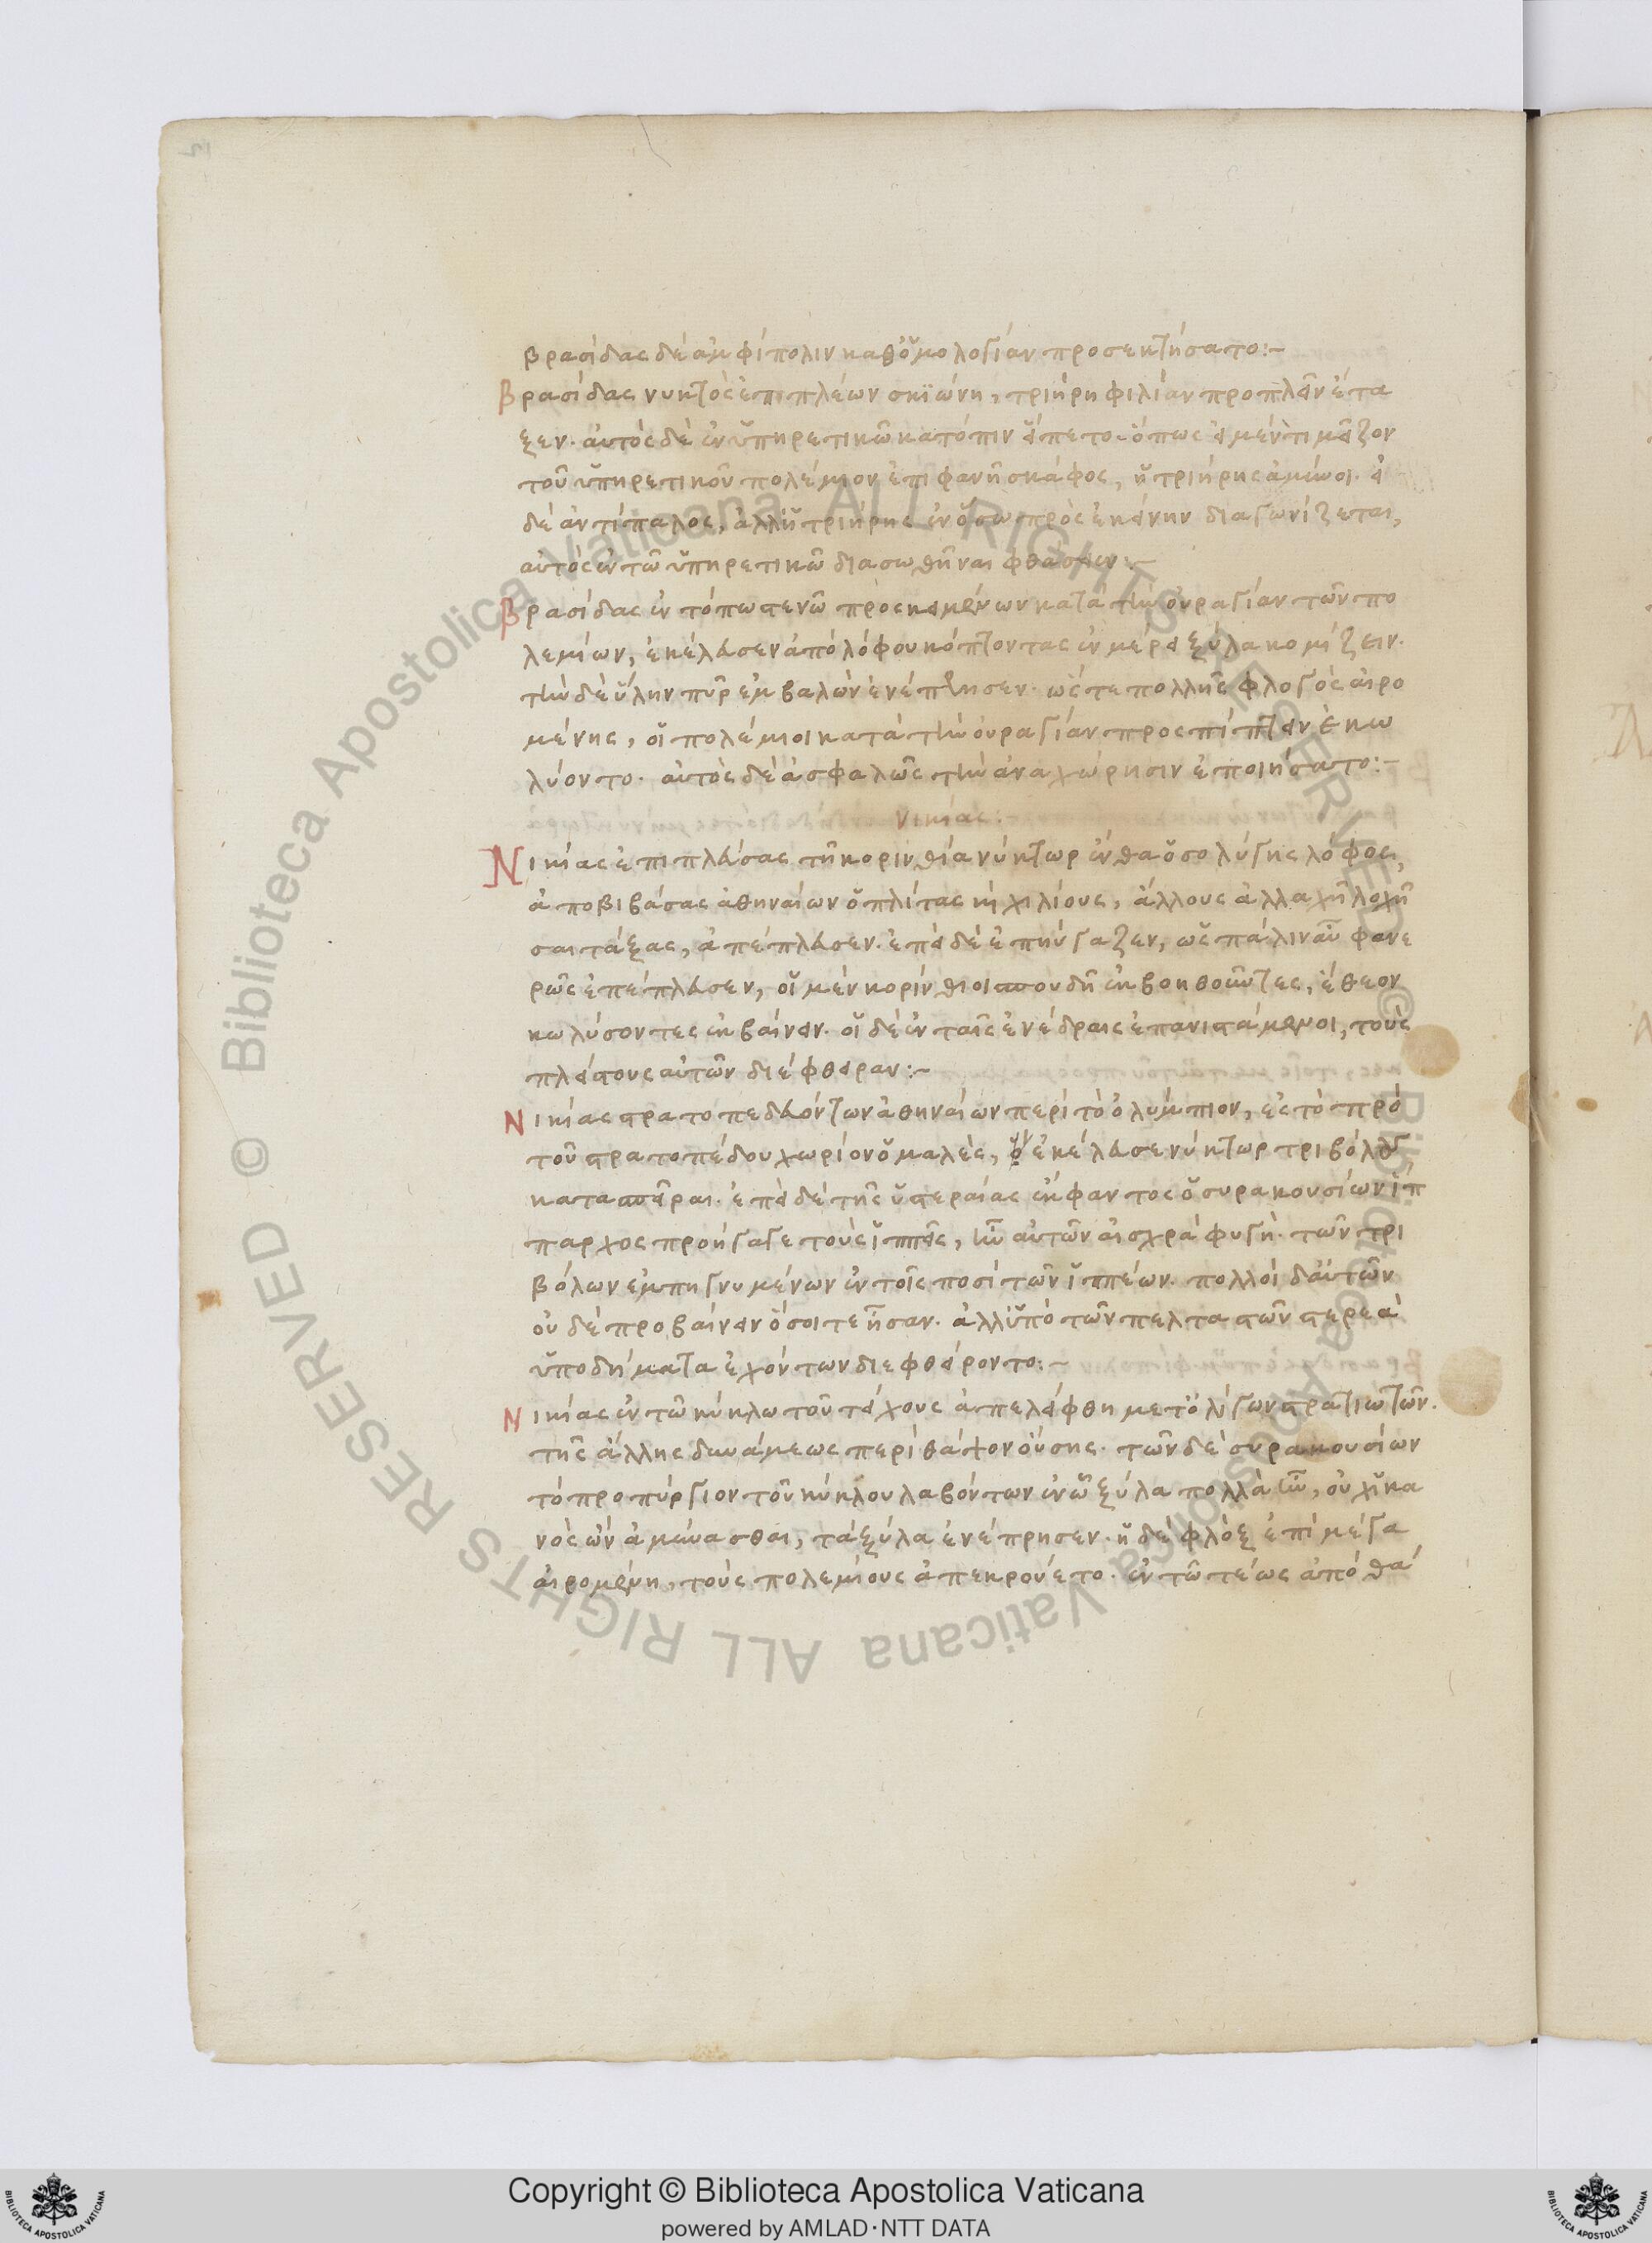 βρασίδας δὲ ἀμφίπολιν καθ᾽ ὁμολογίαν προσεκτήσατο:-
Βρασίδας νυκτὸς ἐπιπλέων σκιώνη, τριήρη φιλίαν προπλεῖν ἔτα
ξεν. αὐτὸς δὲ ἐν ὑπηρετικῶ κατόπιν εἵπετο. ὅπως εἰ μέν τι μεῖζον
τοῦ ὑπηρετικοῦ πολέμιον ἐπιφανῆ σκάφος, ἡ τριήρης ἀμύνοι. εἰ
δὲ ἀντίπαλος, ἀλλ᾽ ἡ τριήρης ἐν ὅσω πρὸς ἐκείνην διαγωνίζεται,
αὐτὸς ἐν τῶ ὑπηρετικῶ διασωθῆναι φθάσειεν:-
Βρασίδας ἐν τόπω στενῶ προσκειμένων κατὰ τὴν οὐραγίαν τῶν πο
λεμίων, ἐκέλευσεν ἀπὸ λόφου κόπτοντας ἐν μέρει ξύλα κομίζειν.
τὴν δὲ ὕλην πῦρ ἐμβαλὼν ἐνέπρησεν. ὥστε πολλῆς φλογὸς αἰρο
μένης, οἱ πολέμιοι κατὰ τὴν οὐραγίαν προσπίπτειν ἐκω
λύοντο. αὐτὸς δὲ ἀσφαλῶς τὴν ἀναχώρησιν ἐποιήσατο:-
Νικίας:
Νικίας ἐπιπλεύσας τῆ κορινθία νύκτωρ ἔνθα ὁ σολύγης λόφος,
ἀποβιβάσας ἀθηναίων ὁπλίτας καὶ χιλίους, ἄλλους ἀλλαχῆ λοχῆ
σαι τάξας, ἀπέπλευσεν. ἐπεὶ δὲ ἐπηύγαζεν, ὡς πάλιν αὖ φανε
ρῶς ἐπέπλευσεν, οἱ μὲν κορίνθιοι σπουδῆ ἐκβοηθοῦντες, ἔθεον
κωλύσοντες ἐκβαίνειν. οἱ δὲ ἐν ταῖς ἐνέδραις ἐπανιστάμενοι, τοὺς
πλείστους αὐτῶν διέφθειραν:-
Νικίας στρατοπεδευόντων ἀθηναίων περὶ τὸ ὀλύμπιον, ἐς τὸ πρὸ
τοῦ στρατοπέδου χωρίον ὁμαλὲς, ἐκέλευσε νύκτωρ τριβόλους
κατασπεῖραι. ἐπεὶ δὲ τῆς ὑστεραίας ἔκφαντος ὁ συρακουσίων ἵπ
παρχος προήγαγε τοὺς ἱππεῖς, ἦν αὐτῶν αἰσχρὰ φυγὴ. τῶν τρι
βόλων ἐμπηγνυμένων ἐν τοῖς ποσὶ τῶν ἱππέων. πολλοὶ δ᾽ αὐτῶν
οὐδὲ προβαίνειν ὅσοι τε ἦσαν. ἀλλ᾽ ὑπὸ τῶν πελταστῶν στερεὰ
ὑποδήματα ἐχόντων διεφθείροντο:-
Νικίας ἐν τῶ κύκλω τοῦ τείχους ἀπελείφθη μετ᾽ ὀλίγων στρατιωτῶν.
τῆς ἄλλης δυνάμεως περὶ θάψον οὔσης. τῶν δὲ συρακουσίων
τὸ προπύργιον τοῦ κύκλου λαβόντων ἐν ὧ ξύλα πολλὰ ἦν, οὐχ ἱκα
νὸς ὢν ἀμύνασθαι, τὰ ξύλα ἐνέπρησεν. ἡ δὲ φλὸξ ἐπὶ μέγα
αἰρομένη, τοὺς πολεμίους ἀπεκρούετο. ἐν τῶ τέως ἀπὸ θά
Biblioteca Apostolica Vaticana ALL RIGHTS RESERVED © Biblioteca Apostolica Vaticana ALL RIGHTS RESERVED ©
Copyright © Biblioteca Apostolica Vaticana
powered by AMLAD·NTT DATA
BIBLIOTECA APOSTOLICA VATICANA
BIBLIOTECA APOSTOLICA VATICANA